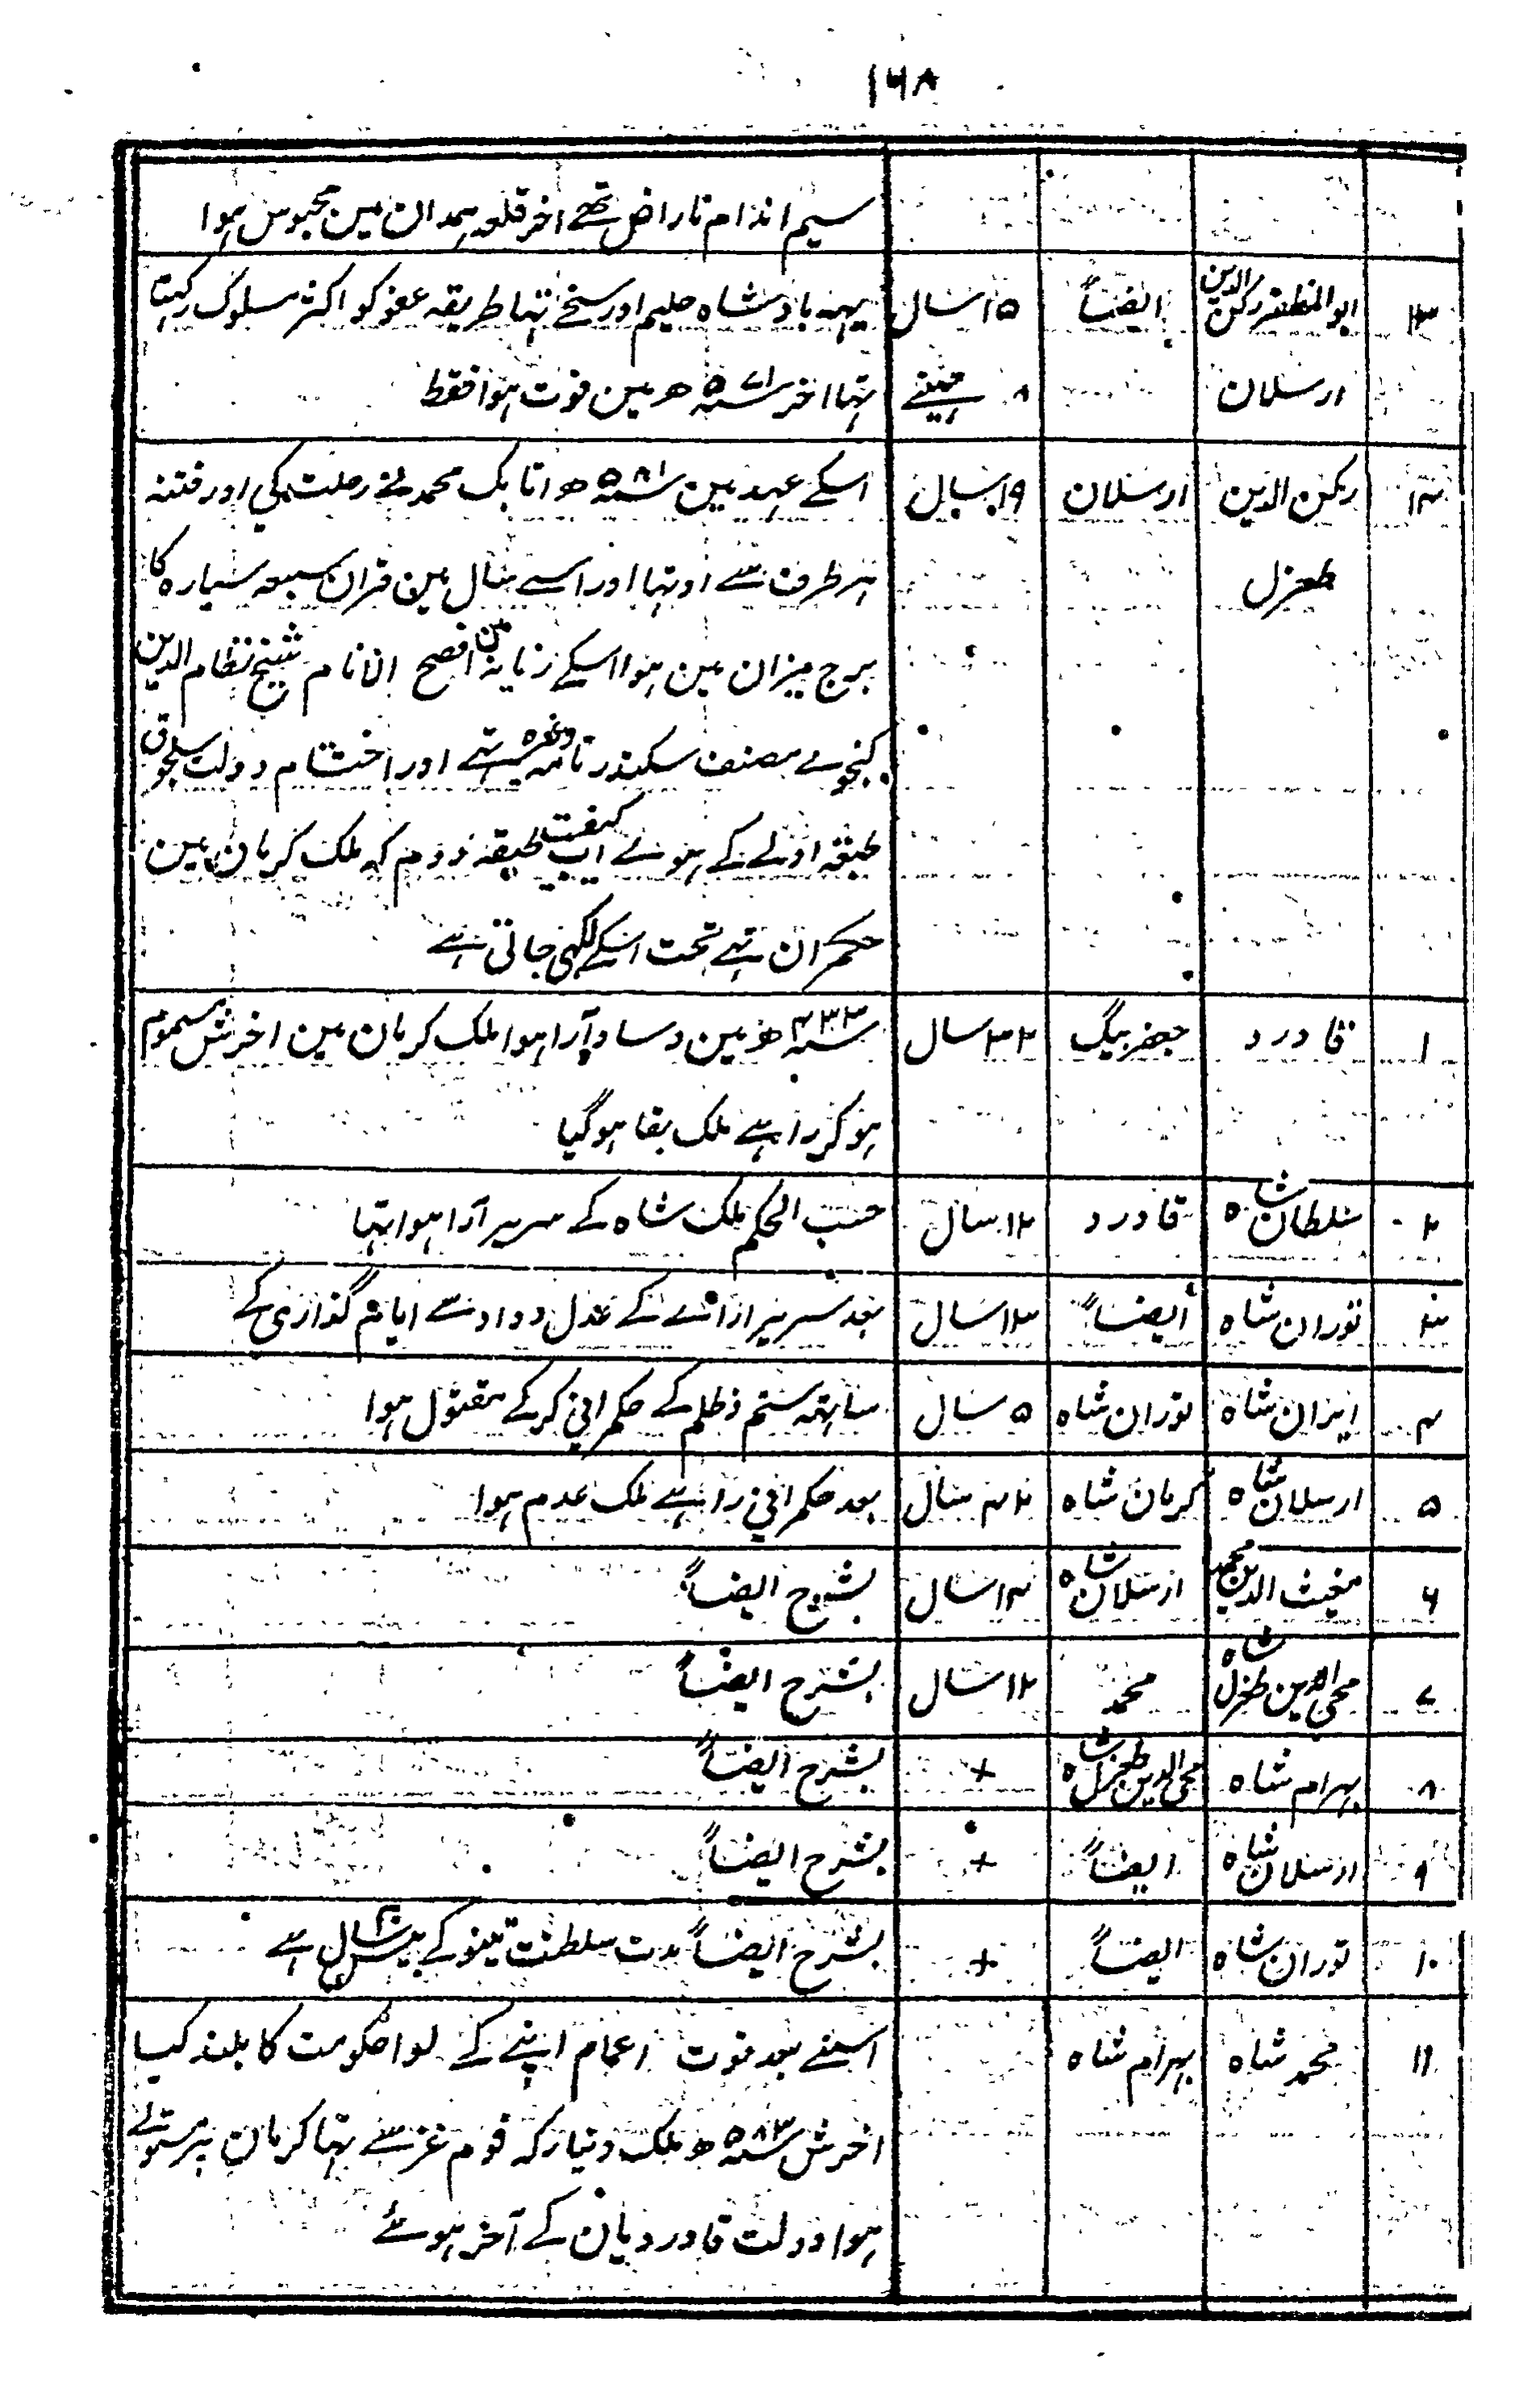 ۱۶۸
سیم اندام ناراض تھے اخر قلعہ ہمدان مین محبوس ہوا
۱۳ ابو المظفر رکن الدین ایضاً ۱۵ سال یہہ بادشاہ حلیم اور سخی تہا طریقہ عفو کو اکثر مسلوک رکہتا
ارسلان ۸ مہینے تہا اخر سنہ ۵۷۱ ھ مین فوت ہوا فقط
۱۴ رکن الدین ارسلان ۱۹ سال اسکے عہد مین سنہ ۵۸۱ ھ اتابک محمد نے رحلت کی اور فتنہ
طغرل ہر طرف سے اوتہا اور اسے سال مین قران سبعہ سیارہ کا
برج میزان مین ہوا اسکے زمانہ مین افصح الانام شیخ نظام الدین
گنجوے مصنف سکندر نامہ وغیرہ تہے اور اختتام دولت سلجوق
طبقہ اولے کے ہوئے اب کیفیت طبقہ دوم کہ ملک کرمان مین
حکمران تہے تحت اسکے لکہی جاتی ہے
۱ قاورد جعفر بیگ ۳۲ سال سنہ ۴۳۳ ھ مین وساده آرا ہوا ملک کرمان مین اخرش مسموم
ہو کر راہے ملک بقا ہوگیا
۲ سلطان شاہ قاورد ۱۲ سال حسب الحکم ملک شاہ کے سریر آرا ہوا تہا
۳ توران شاہ ایضاً ۱۳ سال بعد سریر ارائے کے عدل و داد سے ایام گذاری کے
۴ ایران شاہ توران شاہ ۵ سال ساتہہ ستم و ظلم کے حکمرانی کرکے مقتول ہوا
۵ ارسلان شاہ کرمان شاہ ۴۲ سال بعد حکمرانی راہے ملک عدم ہوا
۶ مغیث الدین محمد ارسلان شاہ ۱۴ سال بشرح ایضاً
۷ محی الدین طغرل شاہ محمد ۱۲ سال بشرح ایضاً
۸ بہرام شاہ محی الدین طغرل شاہ + بشرح ایضاً
۹ ارسلان شاہ ایضاً + بشرح ایضاً
۱۰ توران شاہ ایضاً + بشرح ایضاً مدت سلطنت تینو کے بیس ۲۰ سال ہے
۱۱ محمد شاہ بہرام شاہ اسنے بعد فوت اعمام اپنے کے لوا حکومت کا بلند کیا
اخرش سنہ ۵۸۳ ھ ملک دینار کہ قوم غز سے تہا کرمان پر مستولے
ہوا دولت قاوردیان کے آخر ہوئے